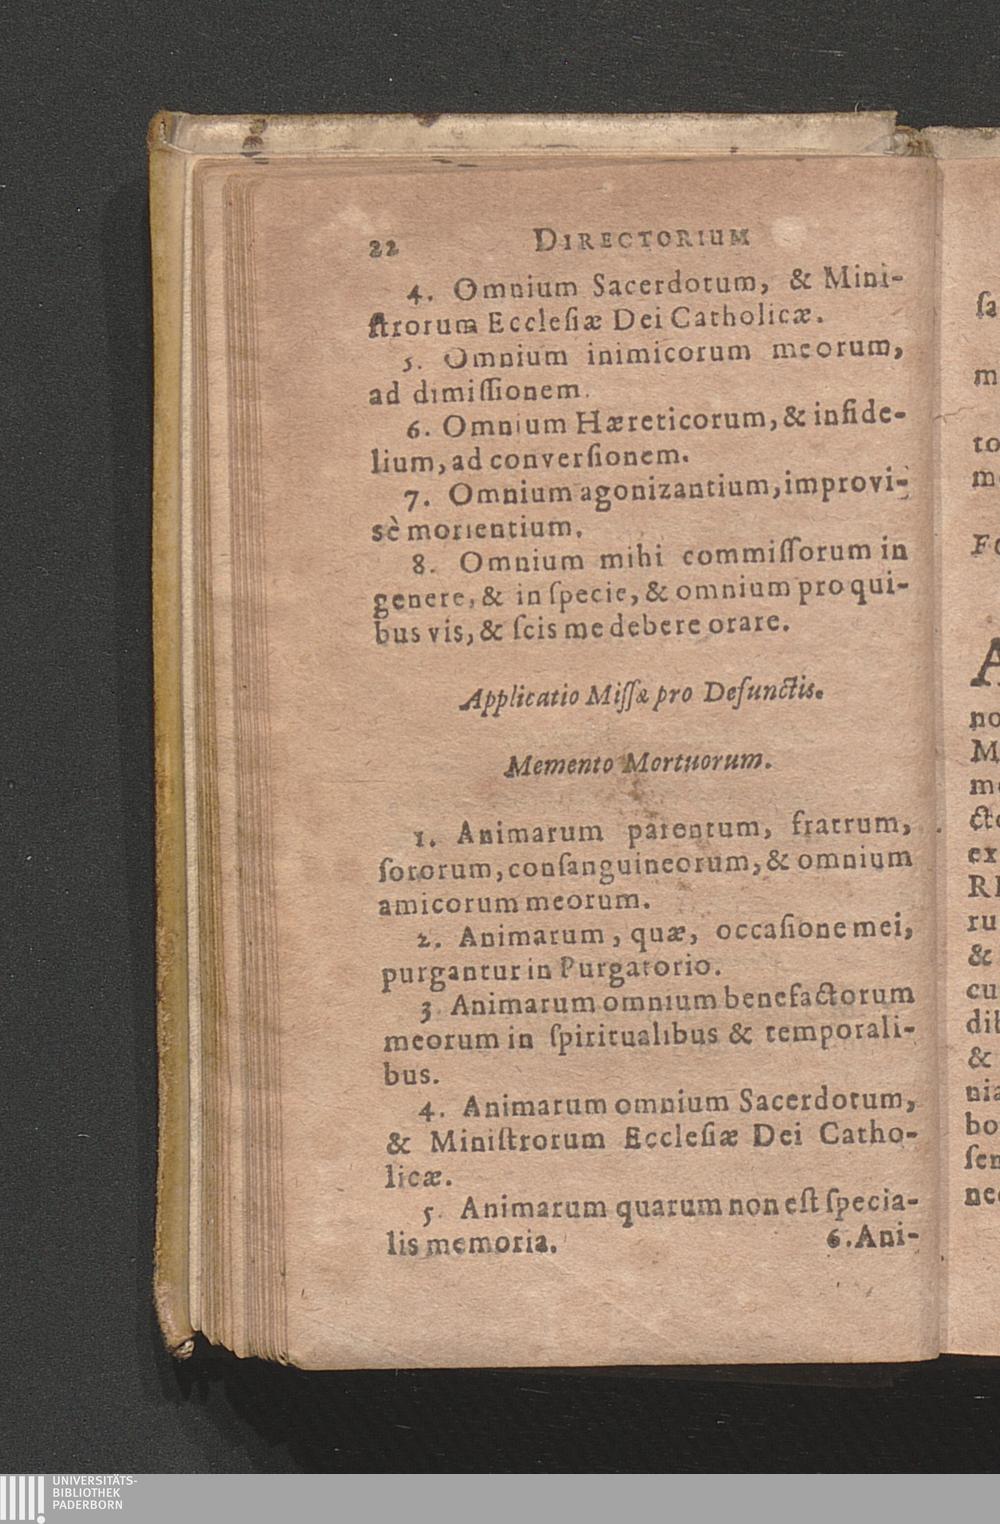 22 DIRECTORIUM
4. Omnium Sacerdotum, & Mini-
ſtrorum Eccleſiæ Dei Catholicæ.
5. Omnium inimicorum meorum,
ad dimiſſionem.
6. Omnium Hæreticorum, & infide-
lium, ad converſionem.
7. Omnium agonizantium, improvi-
sè morientium.
8. Omnium mihi commiſſorum in
genere, & in ſpecie, & omnium pro qui-
bus vis, & ſcis me debere orare.
Applicatio Miſſæ pro Defunctis.
Memento Mortuorum.
1. Animarum parentum, fratrum,
ſororum, conſanguineorum, & omnium
amicorum meorum.
2. Animarum, quæ, occaſione mei,
purgantur in Purgatorio.
3 Animarum omnium benefactorum
meorum in ſpiritualibus & temporali-
bus.
4. Animarum omnium Sacerdotum,
& Miniſtrorum Eccleſiæ Dei Catho-
licæ.
5. Animarum quarum non eſt ſpecia-
lis memoria. 6. Ani-
ſa
m
to
me
FO
A
no
M
me
cto
ex
RE
ru
&
cu
dib
&
nia
bo
ſen
nec
UNIVERSITÄTS-
BIBLIOTHEK
PADERBORN